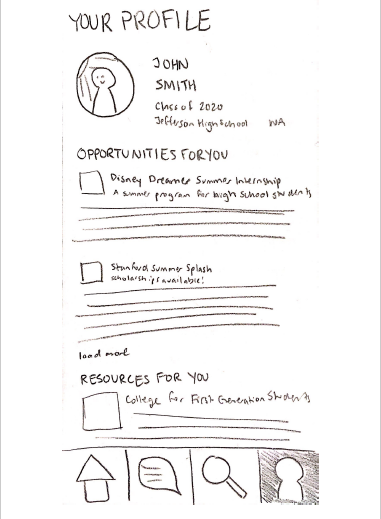 YOUR PROFILE
JOHN
SMITH
Class of 2020
Jefferson High School WA
OPPORTUNITIES FOR YOU
Disney Dreamer Summer Internship
A summer program for high school students
Stanford Summer Splash
scholarships available!
load more
RESOURCES FOR YOU
College for First Generation Students